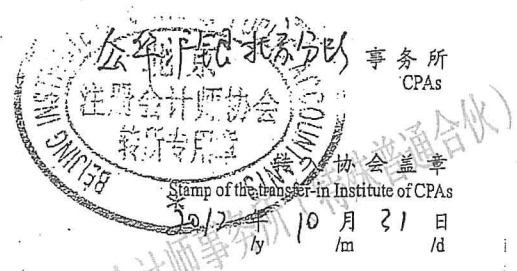 事务所
CPAs
北京
注册会计师协会
转所专用章
BEIJING INSTITUTE ACCOUNTANTS
转入协会盖章
Stamp of the transfer-in Institute of CPAs
2012年10月31日
/y /m /d
会计师事务所(特殊普通合伙)